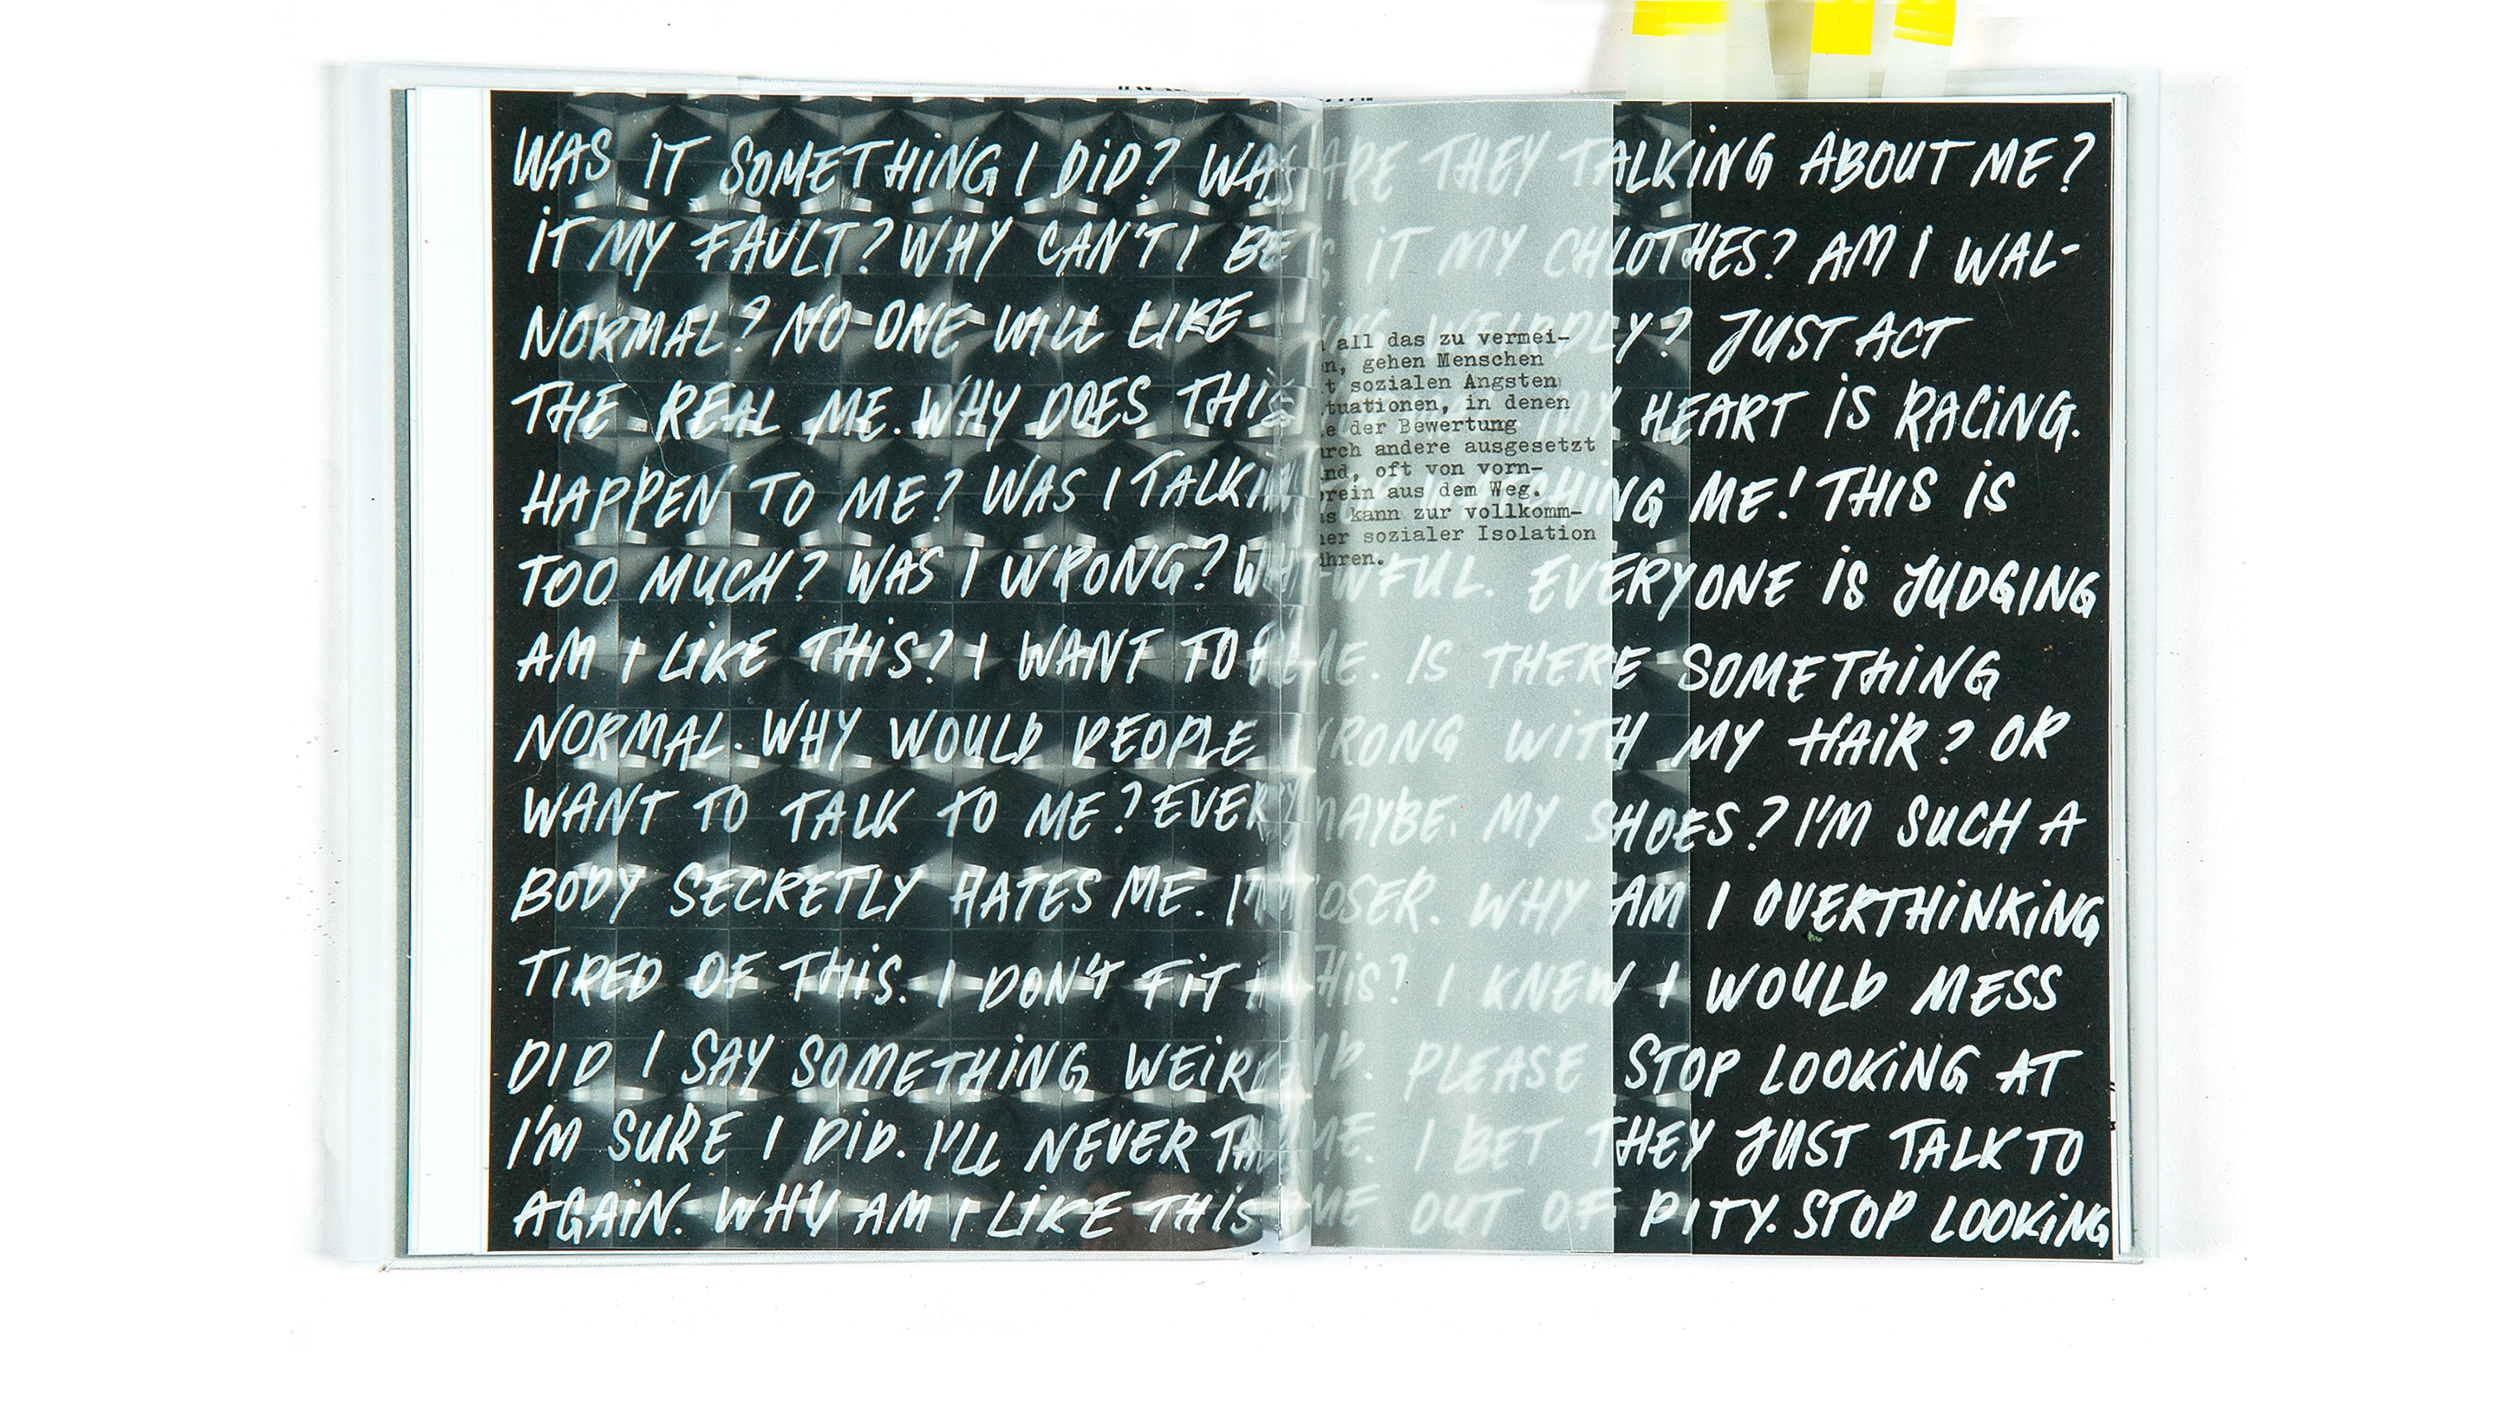 WAS IT SOMETHING I DID? WAS
IT MY FAULT? WHY CAN'T I BE
NORMAL? NO ONE WILL LIKE
THE REAL ME. WHY DOES THIS
HAPPEN TO ME? WAS I TALKIN
TOO MUCH? WAS I WRONG? WHY
AM I LIKE THIS? I WANT TO
NORMAL. WHY WOULD PEOPLE
WANT TO TALK TO ME? EVERY
BODY SECRETLY HATES ME. I'M
TIRED OF THIS. I DON'T FIT
DID I SAY SOMETHING WEIRD
I'M SURE I DID. I'LL NEVER
AGAIN. WHY AM I LIKE THIS
ARE THEY TALKING ABOUT ME?
IT MY CHLOTHES? AM I WAL-
WEIRDLY? JUST ACT
MY HEART IS RACING.
ME! THIS IS
AWFUL. EVERYONE IS JUDGING
ME. IS THERE SOMETHING
WRONG WITH MY HAIR? OR
MAYBE MY SHOES? I'M SUCH A
LOSER. WHY AM I OVERTHINKING
THIS? I KNEW I WOULD MESS
PLEASE STOP LOOKING AT
ME. I BET THEY JUST TALK TO
ME OUT OF PITY. STOP LOOKING
all das zu vermei-
gehen Menschen
sozialen Ängsten
tuationen, in denen
der Bewertung
andere ausgesetzt
oft von vorn-
rein aus dem Weg.
kann zur vollkomm-
sozialer Isolation
hren.